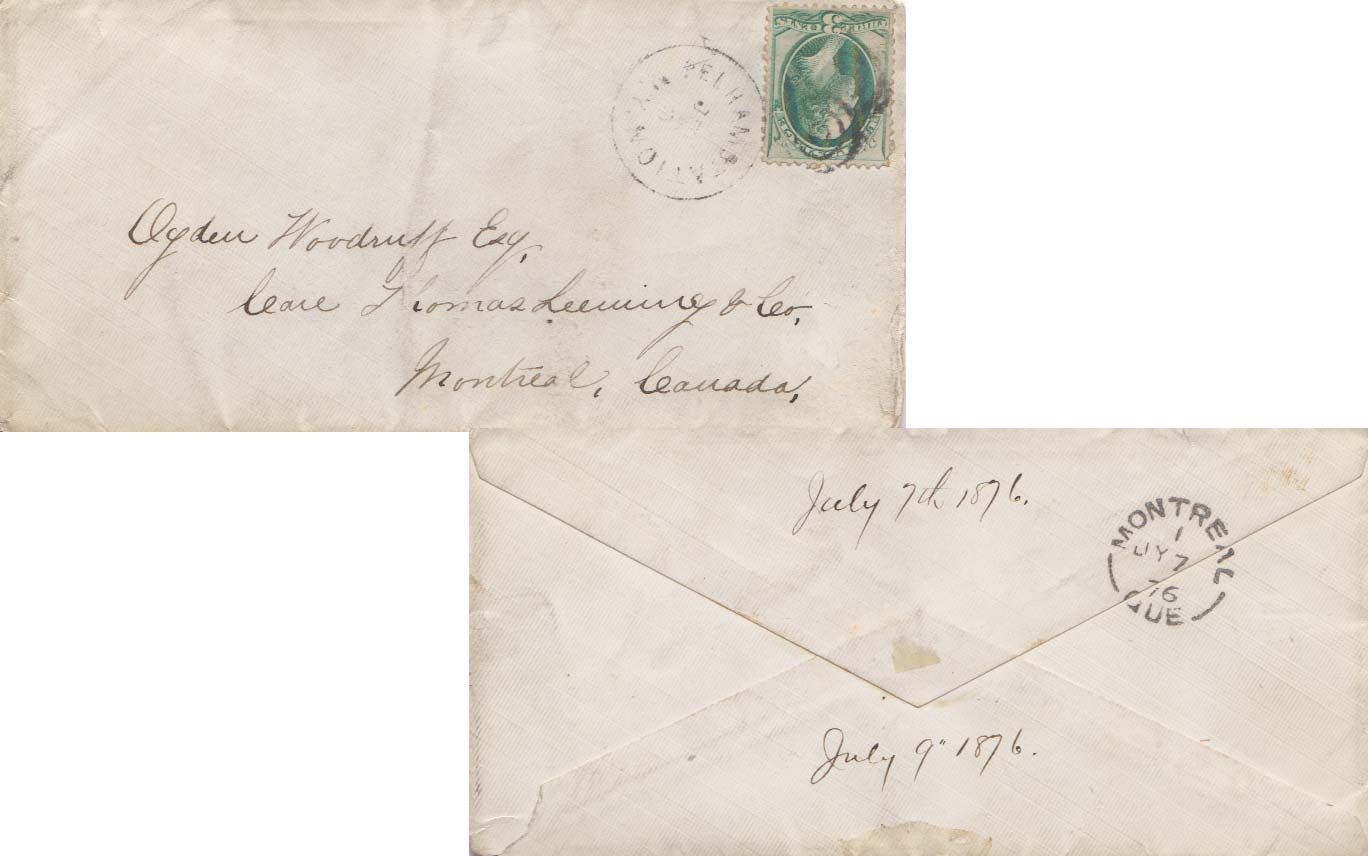 PELHAM STATION N.Y.
3
Ogden Woodruff Esq,
Care Thomas Leeming & Co,
Montreal, Canada,
July 7th 1876.
MONTREAL
1
JY 7
76
QUE
July 9" 1876.